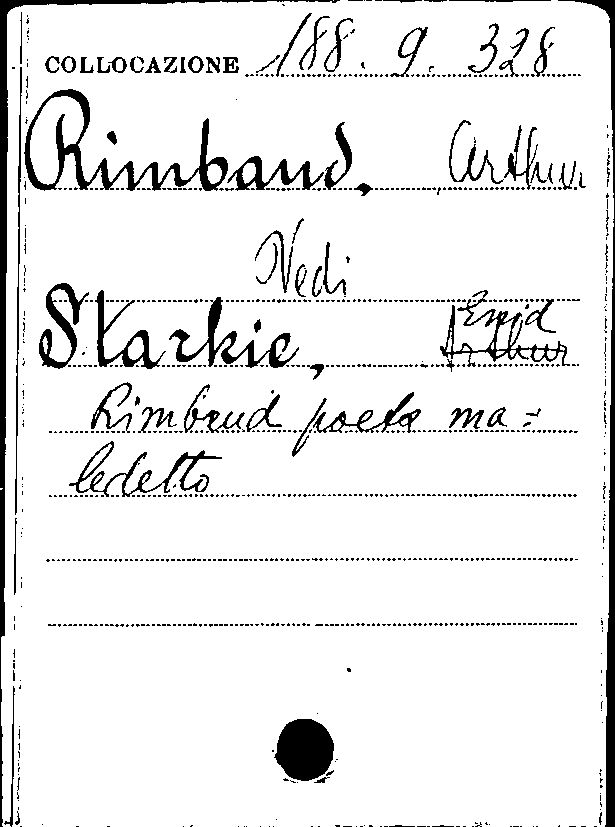 COLLOCAZIONE 188. 9. 328
Rimbaud, Arthur
Vedi
Starkie, Enid
Arthur
Rimbaud poeta ma=
ledetto